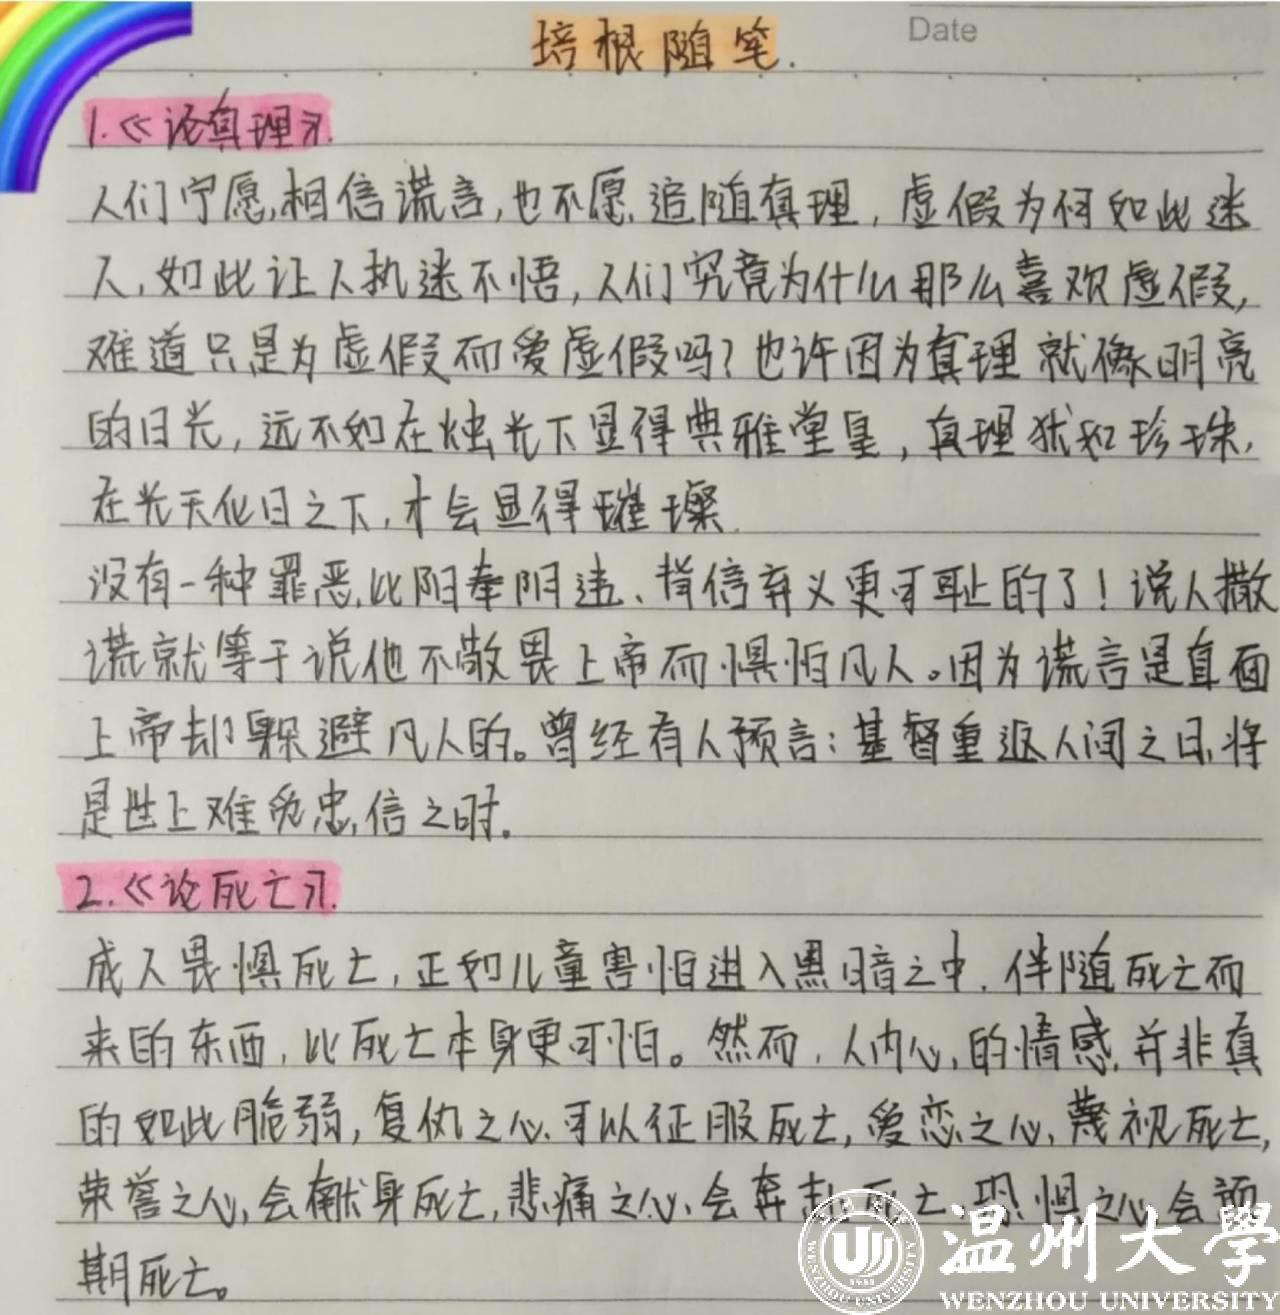 Date
培根随笔.
1.《论真理》.
人们宁愿相信谎言,也不愿追随真理,虚假为何如此迷
人,如此让人执迷不悟,人们究竟为什么那么喜欢虚假,
难道只是为虚假而爱虚假吗?也许因为真理就像明亮
的日光,远不如在烛光下显得典雅堂皇,真理犹如珍珠,
在光天化日之下,才会显得璀璨.
没有一种罪恶比阳奉阴违、背信弃义更可耻的了!说人撒
谎就等于说他不敬畏上帝而惧怕凡人。因为谎言是直面
上帝却躲避凡人的。曾经有人预言:基督重返人间之日,将
是世上难觅忠信之时。
2.《论死亡》.
成人畏惧死亡,正如儿童害怕进入黑暗之中.伴随死亡而
来的东西,比死亡本身更可怕。然而,人内心的情感,并非真
的如此脆弱,复仇之心,可以征服死亡,爱恋之心,蔑视死亡,
荣誉之心,会献身死亡,悲痛之心,会奔赴死亡,恐惧之心会预
期死亡。
温州大学
WENZHOU UNIVERSITY